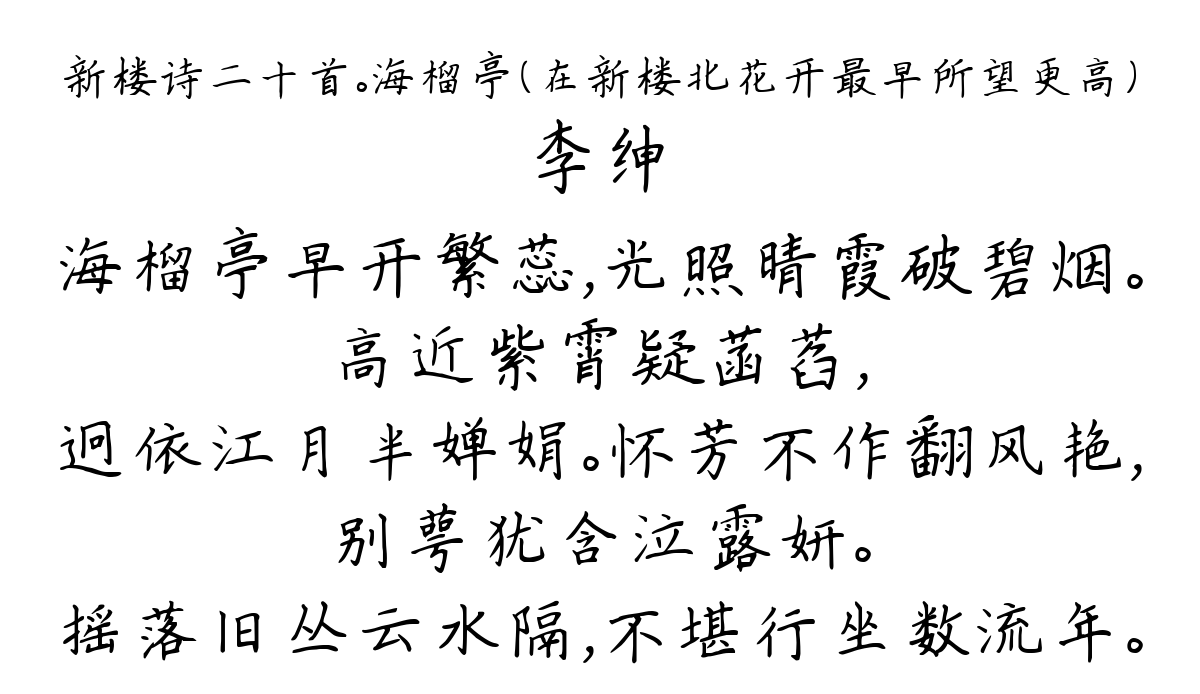 新楼诗二十首。海榴亭(在新楼北花开最早所望更高)
李绅
海榴亭早开繁蕊,光照晴霞破碧烟。
高近紫霄疑菡萏,
迥依江月半婵娟。怀芳不作翻风艳,
别萼犹含泣露妍。
摇落旧丛云水隔,不堪行坐数流年。